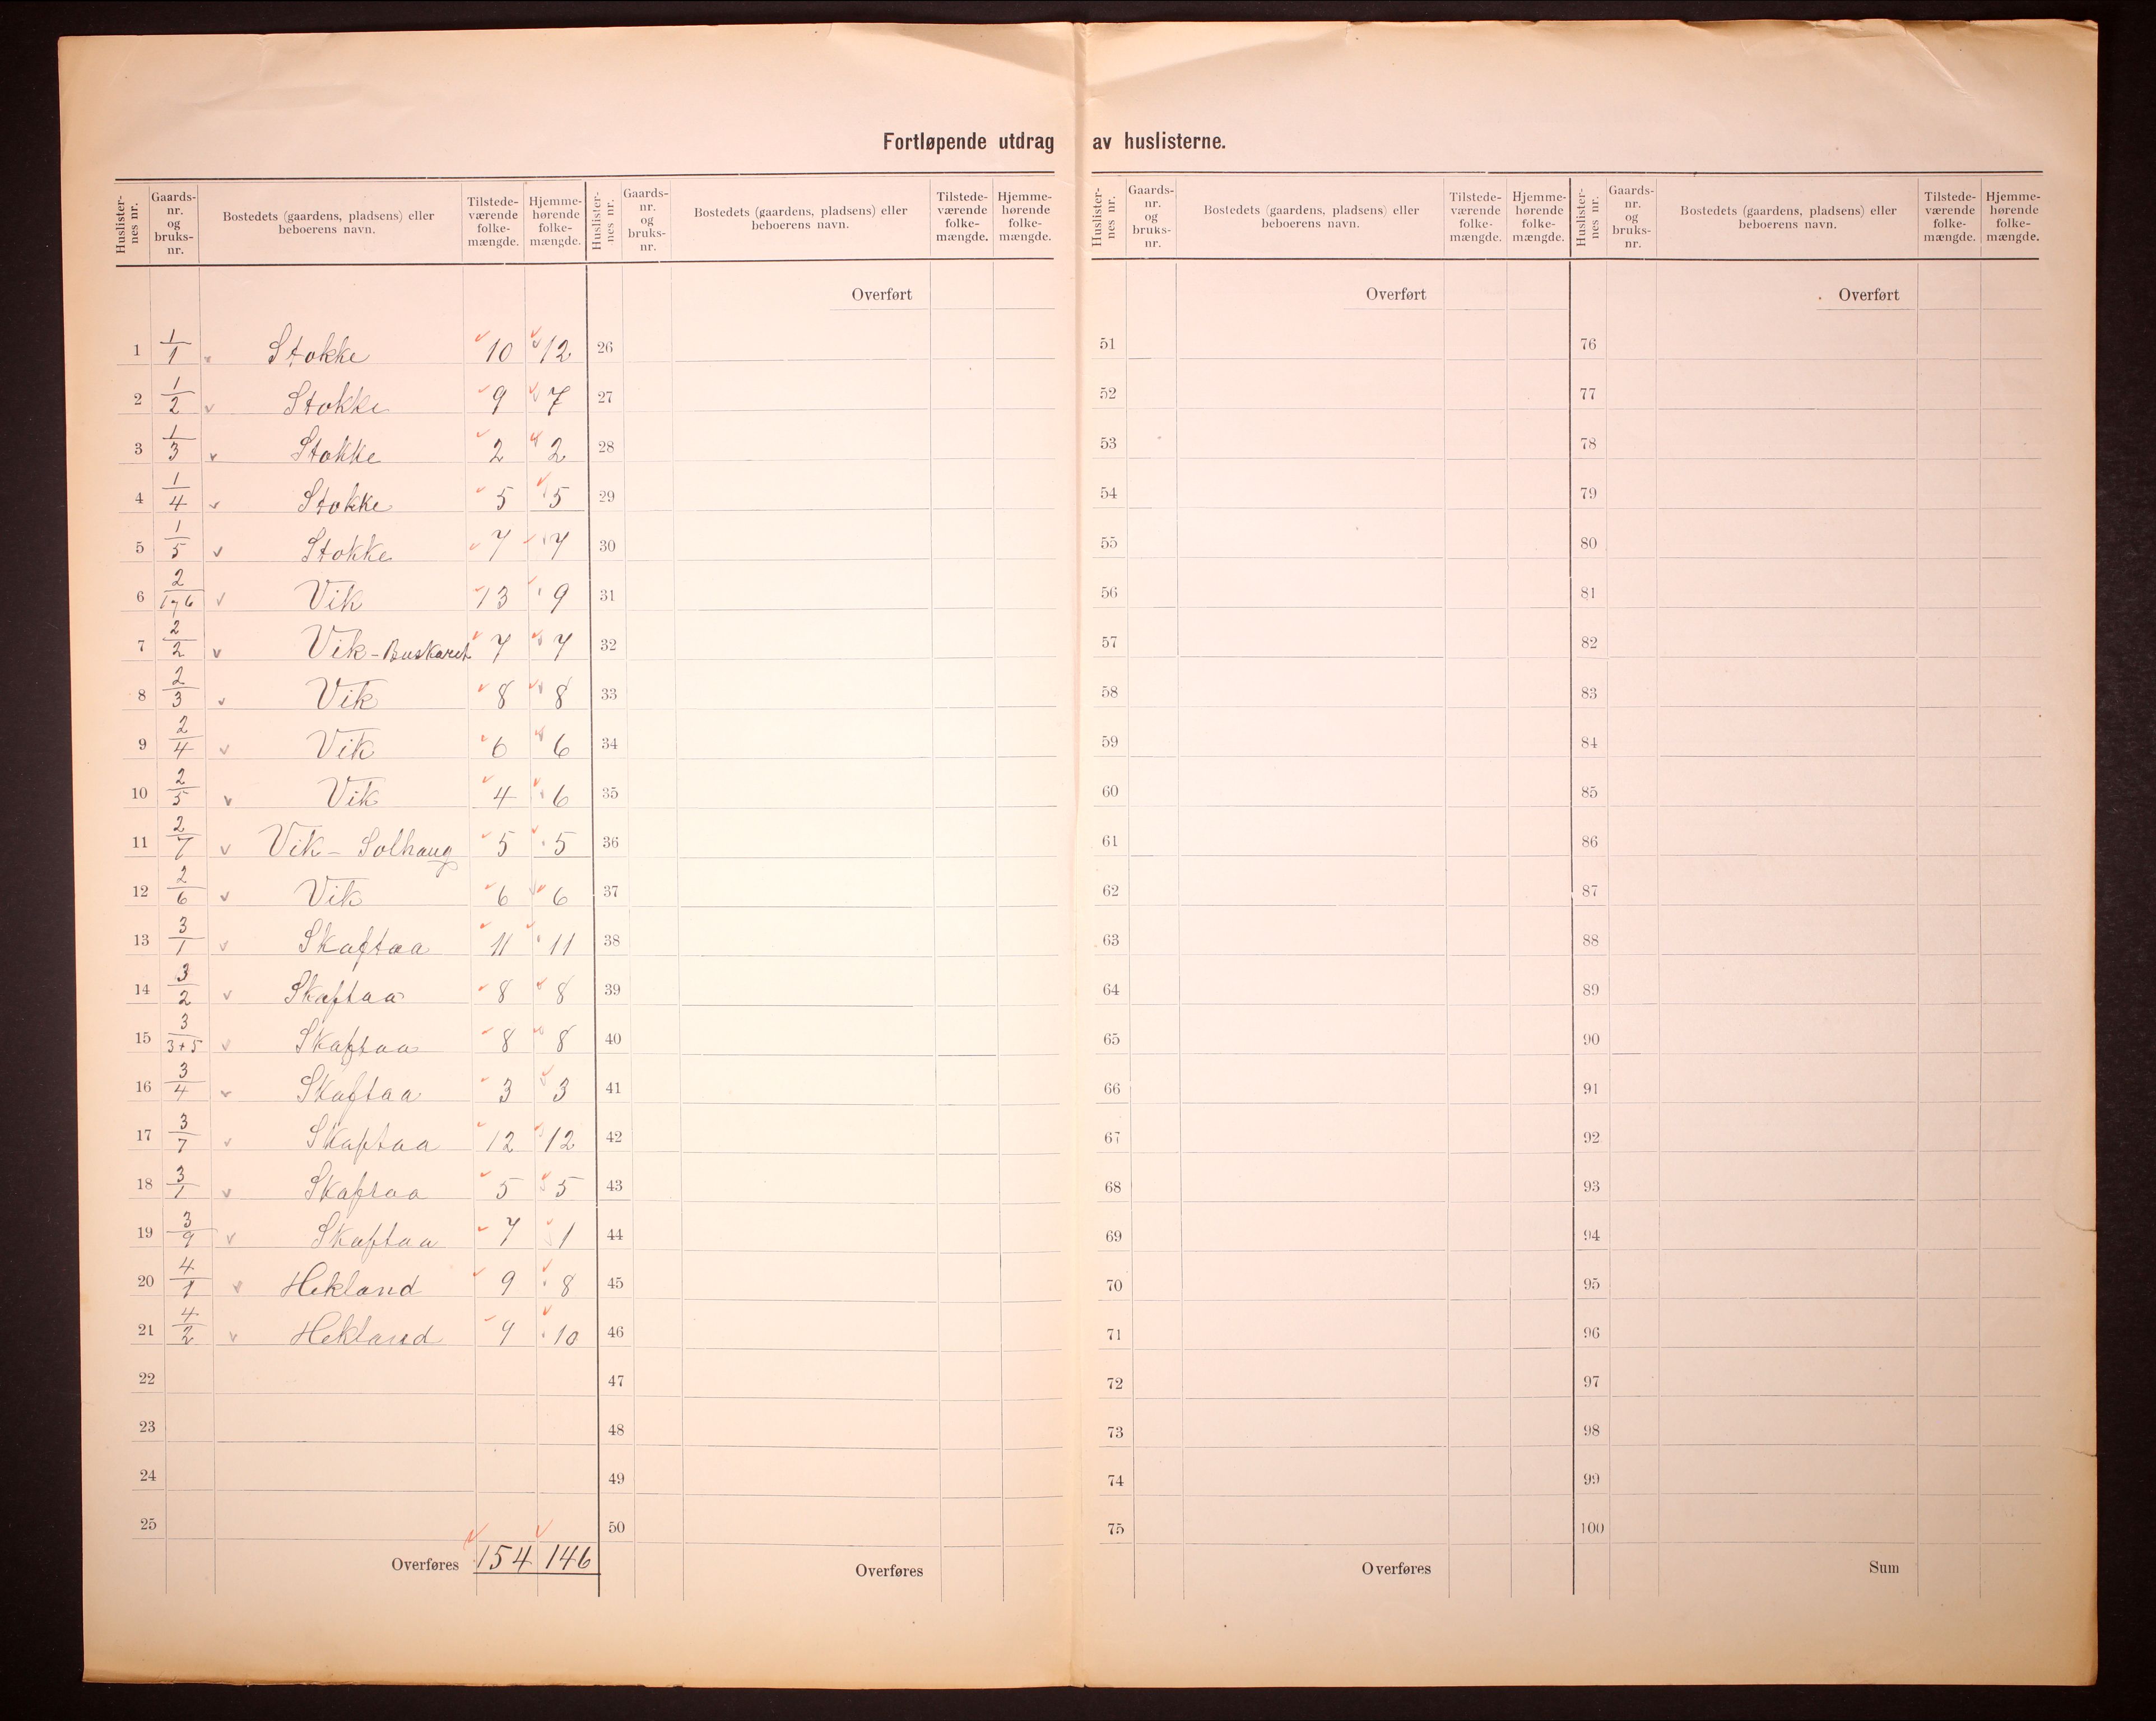 Fortløpende utdrag av huslisterne.
Huslister-nes nr. Gaards-nr. og bruks-nr. Bostedets (gaardens, pladsens) eller beboerens navn. Tilstede-værende folke-mængde. Hjemme-hørende folke-mængde.
1 1/1 Stokke 10 12
2 1/2 Stokke 9 7
3 1/3 Stokke 2 2
4 1/4 Stokke 5 5
5 1/5 Stokke 7 7
6 2/1 Vik 13 9
7 2/2 Vik - Buskaret 7 7
8 2/3 Vik 8 8
9 2/4 Vik 6 6
10 2/5 Vik 4 6
11 2/7 Vik - Solhaug 5 5
12 2/6 Vik 6 6
13 3/1 Skaftaa 11 11
14 3/2 Skaftaa 8 8
15 3/3+5 Skaftaa 8 8
16 3/4 Skaftaa 3 3
17 3/7 Skaftaa 12 12
18 3/1 Skaftaa 5 5
19 3/9 Skaftaa 7 1
20 4/1 Hekland 9 8
21 4/2 Hekland 9 10
22
23
24
25
Overføres 154 146
Huslister-nes nr. Gaards-nr. og bruks-nr. Bostedets (gaardens, pladsens) eller beboerens navn. Tilstede-værende folke-mængde. Hjemme-hørende folke-mængde.
Overført
26
27
28
29
30
31
32
33
34
35
36
37
38
39
40
41
42
43
44
45
46
47
48
49
50
Overføres
Huslister-nes nr. Gaards-nr. og bruks-nr. Bostedets (gaardens, pladsens) eller beboerens navn. Tilstede-værende folke-mængde. Hjemme-hørende folke-mængde.
Overført
51
52
53
54
55
56
57
58
59
60
61
62
63
64
65
66
67
68
69
70
71
72
73
74
75
Overføres
Huslister-nes nr. Gaards-nr. og bruks-nr. Bostedets (gaardens, pladsens) eller beboerens navn. Tilstede-værende folke-mængde. Hjemme-hørende folke-mængde.
Overført
76
77
78
79
80
81
82
83
84
85
86
87
88
89
90
91
92
93
94
95
96
97
98
99
100
Sum